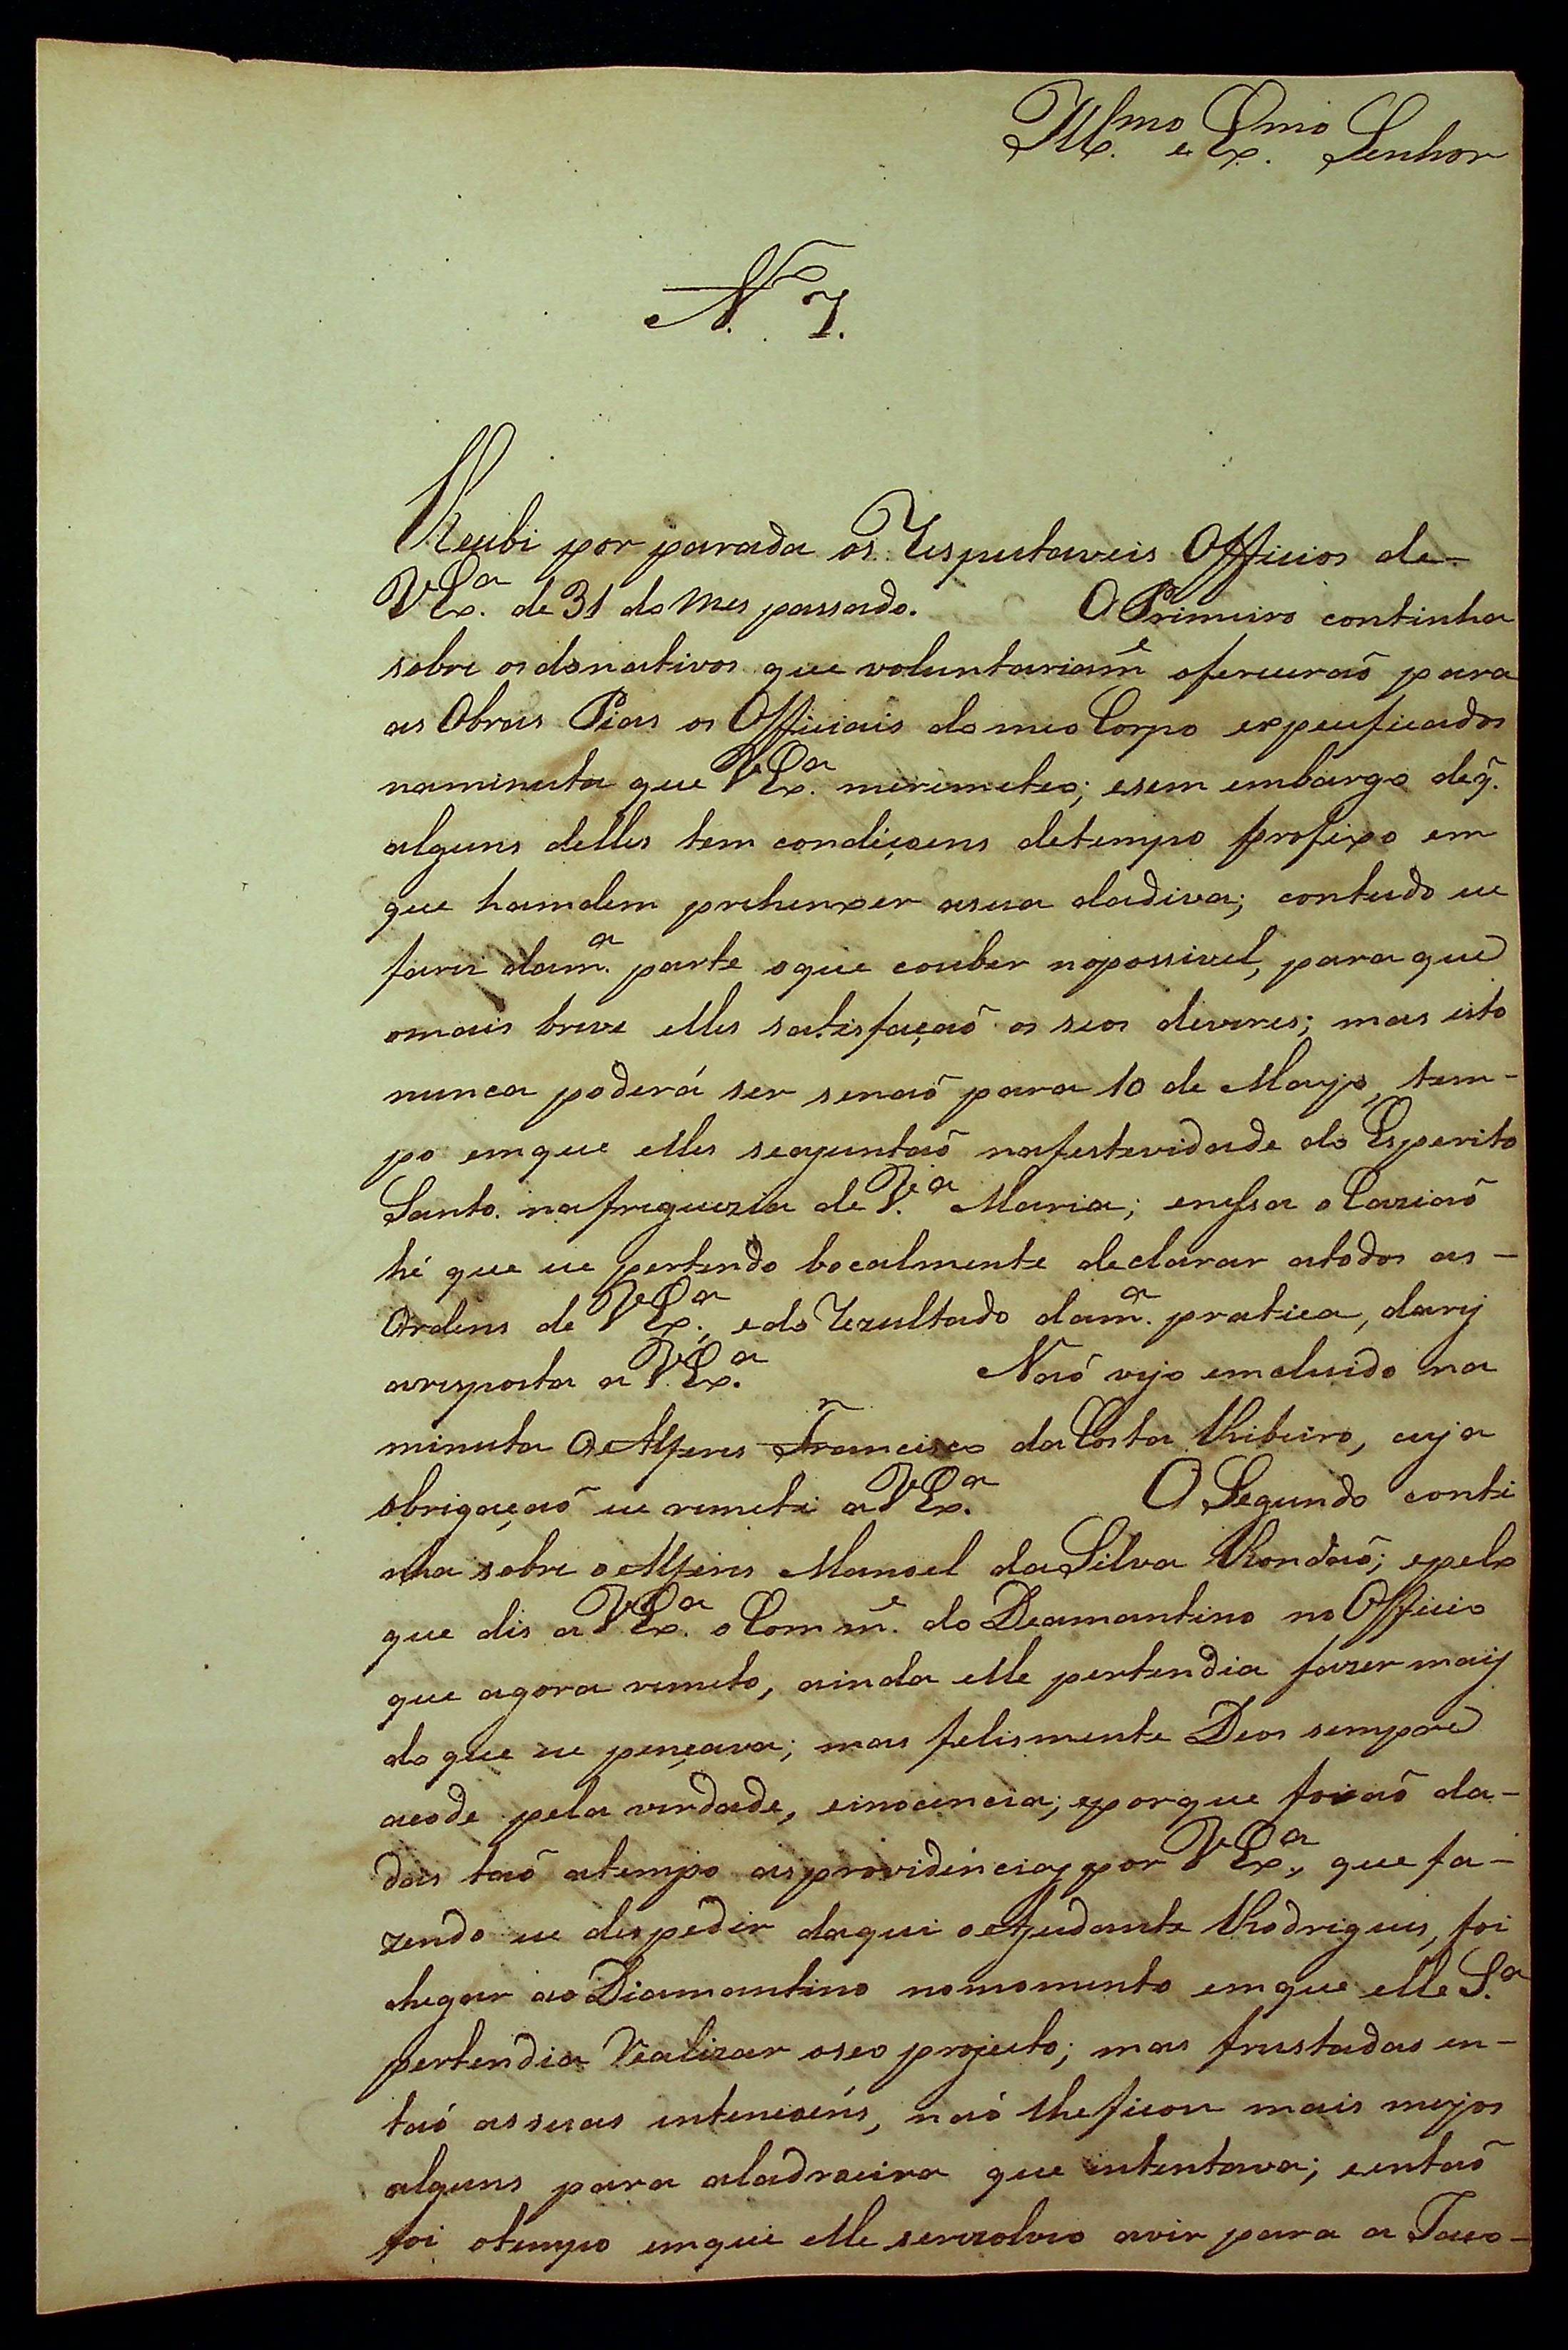 Ill.mo e Ex.mo Senhor
N.o 7.
Recebi por parada os Respeitaveis Officios de-
VEx.a de 31 do Mes passado. O Primeiro continha
sobre os donativos que voluntariam.e ofereceraõ para
as Obras Pias os Officiais do meo Corpo expecificados
naminuta que VEx.a meremeteo; esem embargo deq̃.
alguns delles tem condiçoens detempo profixo em
que hamdem prehenxer asua dadiva; contudo eu
farei dam.a parte oque couber nopossivel, para que
omais breve elles satisfaçaõ os seos deveres; mas isto
nunca poderá ser senaõ para 10 de Mayo, tem-
po emque elles seajuntaõ nafestividade do Esperito
Santo. nafreguezia de V.a Maria; enessa oCaziaõ
hé que eu pertendo bocalmente declarar atodos as-
Ordens de VEx.a, edo Rezultado dam.a pratica, darej
aresposta a VEx.a Naõ vejo emcluido na
minuta OAlferes Francisco da Costa Ribeiro, cuja
obrigaçaõ eu remeti a VEx.a O Segundo conti
nha sobre oAlferes Manoel da Silva Rondaõ; epelo
que dis a VEx.a o Com m.e do Deamantino no Officio
que agora remeto, ainda elle pertendia fazer maij
do que eu pençava; mas felismente Deos sempre
acode pela verdade, einocencia; eporque foraõ da-
das taõ atempo asprovidenciaj por VEx.a, que fa-
zendo eu despedir daqui oAjudante Rodrigues, foi
chegar ao Diamantino nomomento emque elle S.a
pertendia Realizar oseo projecto; mas frustadas en-
taõ assuas intencoéns, naõ lheficou mais meyos
alguns para aladraeira que intentava; eentaõ
foi otempo emque elle serezolveo avir para a Jaco-